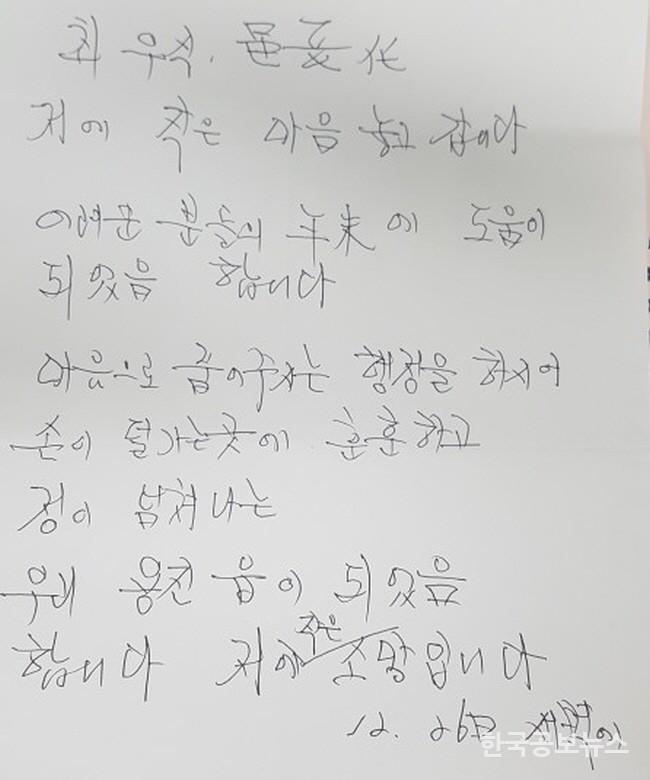 최 우석. 邑長님
저에 작은 마음 놓고 갑니다
어려운 분들의 年末에 도움이
되었음 합니다
마음으로 품어주시는 행정을 하시어
손이 덜가는곳에 훈훈하고
정이 넘쳐나는
우리 용진 읍이 되었음
합니다 저에 작은 소망입니다
12. 26日 새벽에
한국공보뉴스